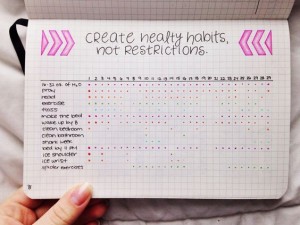 create healty habits,
not restrictions.
1 2 3 4 5 6 7 8 9 10 11 12 13 14 15 16 17 18 19 20 21 22 23 24 25 26 27 28 29
of H2O
pray
read
exercise
floss
make the bed
wake up by 8
clean bedroom
clean bathroom
bed by 11
ice shoulder
ice wrist
exercises